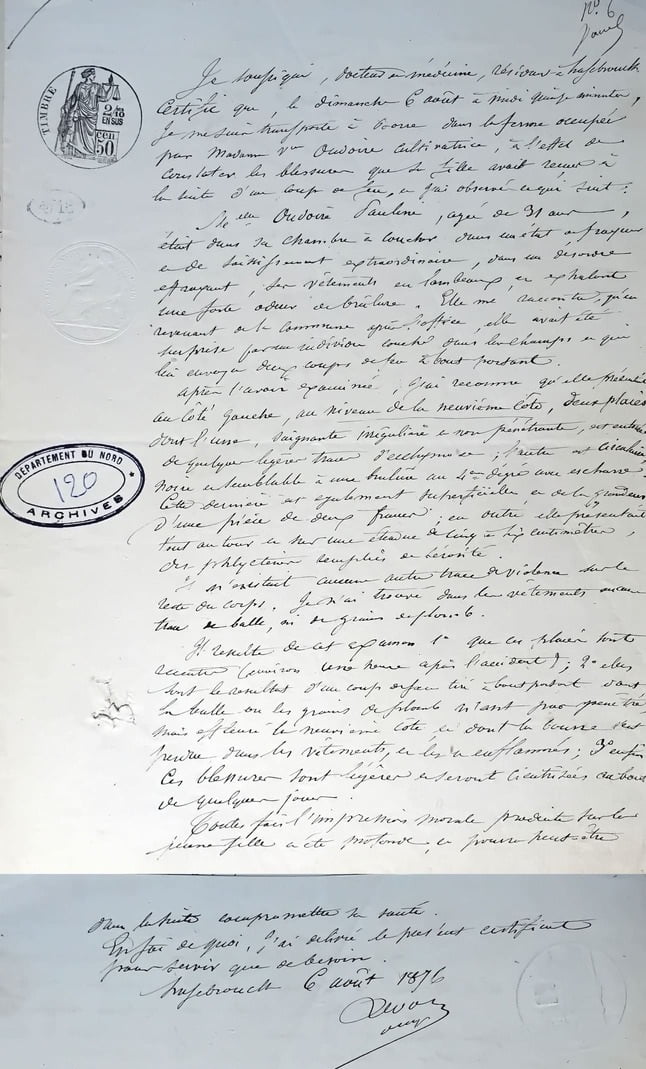 No. 6
TIMBRE
2/10
EN SUS
50
cen
Je soussigné, docteur en médecine, résidant à Hazebrouck
Certifie que, le dimanche 6 août à midi quinze minutes,
Je me suis transporté à dans la ferme occupée
par Madame Vve Oudoire cultivatrice, à l'effet de
constater les blessures que sa fille avait reçues à
la suite d'un coup de feu, et j'ai observé ce qui suit :
Melle Oudoire Pauline, agée de 31 ans,
était dans sa chambre à coucher dans un état de frayeur
et de saisissement extraordinaire, dans un désordre
effrayant, ses vêtements en lambeaux et exhalant
une forte odeur de brûlure. Elle me raconta, qu'en
revenant de la commune après l'office, elle avait été
surprise par un individu couché dans les champs et qui
lui envoya deux coups de feu à bout portant.
Après l'avoir examinée, j'ai reconnu qu'elle présente
au côté gauche, au niveau de la neuvième côte, deux plaies
dont l'une, saignante irrégulière et non pénétrante, est entourée
de quelques légères traces d'ecchymose ; l'autre est circulaire
noire et semblable à une brûlure au 4me dégré avec eschare.
Cette dernière est également superficielle et de la grandeur
d'une pièce de deux francs ; en outre elle présentait
tout autour et sur une étendue de cinq à six centimètres,
des phlyctènes remplies de sérosité.
Il n'existait aucune autre trace de violence sur le
reste du corps. Je n'ai trouvé dans les vêtements aucune
trace de balle, ni de grains de plomb.
Il résulte de cet examen 1° que ces plaies sont
récentes (environ une heure après l'accident) ; 2° elles
sont le résultat d'un coup de feu tiré à bout portant dont
la balle ou les grains de plomb n'ont pas pénétré
mais effleuré la neuvième côte, et dont la bourre s'est
perdue dans les vêtements, et les a enflammés ; 3° enfin
Ces blessures sont légères et seront cicatrisées au bout
de quelques jours.
Toutes fois l'impression morale produite sur la
jeune fille a été profonde, et pourra peut-être
DÉPARTEMENT DU NORD
120
ARCHIVES
dans la suite compromettre sa santé.
En foi de quoi, j'ai délivré le présent certificat
pour servir que de besoin.
Hazebrouck 6 août 1876